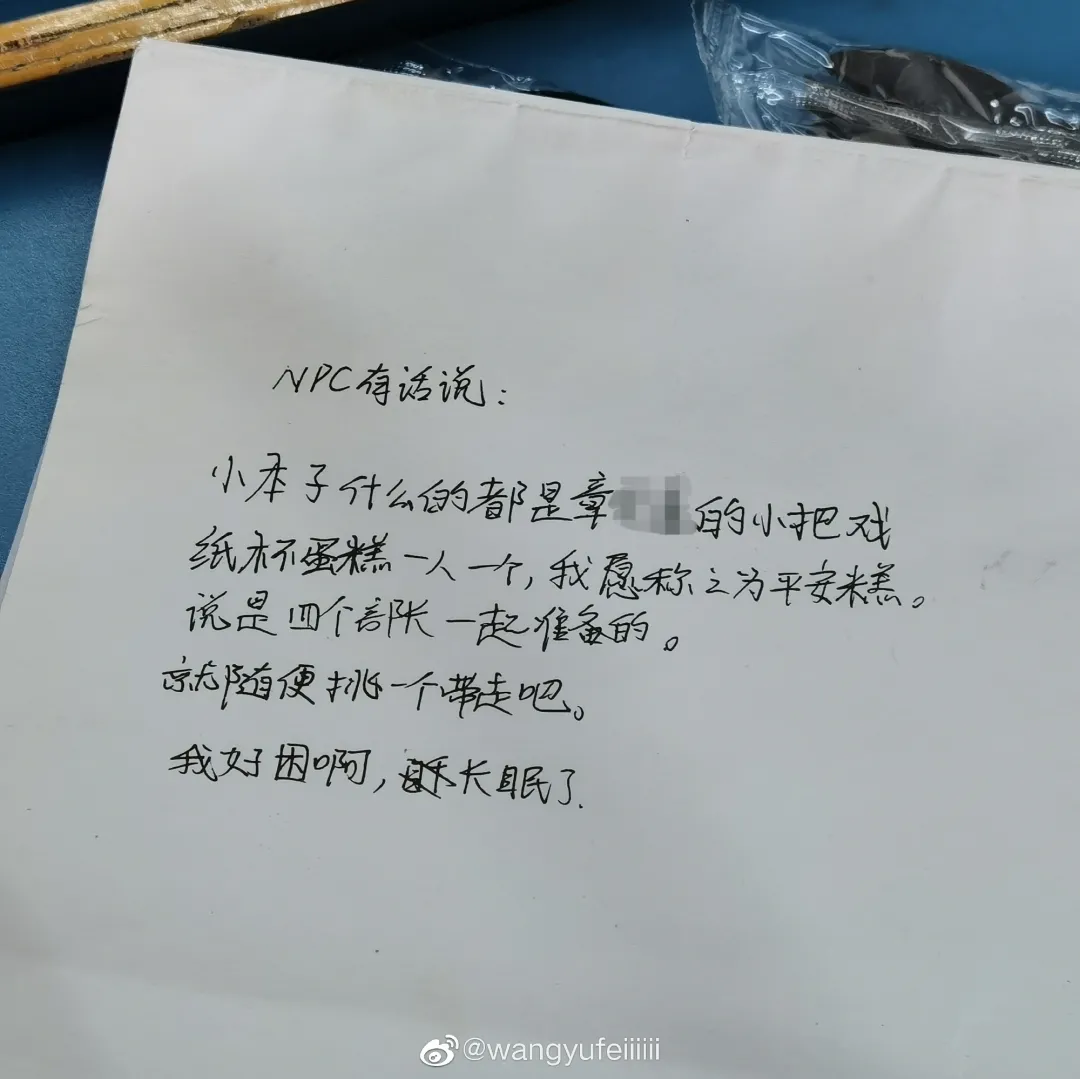 NPC有话说：
小本子什么的都是章的小把戏
纸杯蛋糕一人一个，我愿称之为平安糕。
说是四个部长一起准备的。
就随便挑一个带走吧。
我好困啊，长眠了.
@wangyufeiiiiii